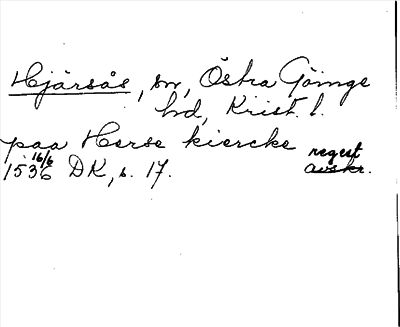 Hjärsås, sn, Östra Göinge
hd, Krist. l.
paa Herse kiercke
regest
1536 16/6 DK, s. 17. avskr.